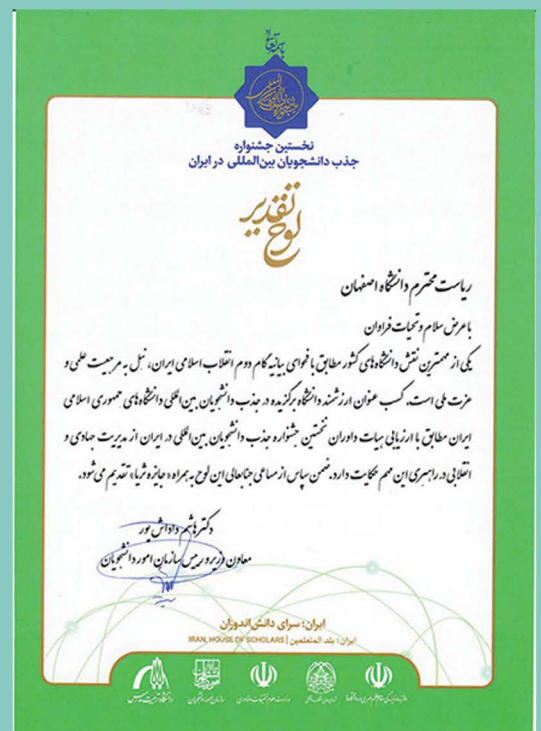 باسمه تعالی
نخستین جشنواره
جذب دانشجویان بین‌المللی در ایران
لوح تقدیر
ریاست محترم دانشگاه اصفهان
با عرض سلام و تحیات فراوان
یکی از مهمترین نقش دانشگاه‌های کشور مطابق با فحوای بیانیه گام دوم انقلاب اسلامی ایران، نیل به مرجعیت علمی و
عزت ملی است. کسب عنوان ارزشمند دانشگاه برگزیده در جذب دانشجویان بین‌المللی دانشگاه‌های جمهوری اسلامی
ایران مطابق با ارزیابی هیات داوران نخستین جشنواره جذب دانشجویان بین‌المللی در ایران از مدیریت جهادی و
انقلابی در راهبری این مهم حکایت دارد. ضمن سپاس از مساعی جنابعالی این لوح به همراه «جایزه ثریا» تقدیم می‌شود.
دکتر هاشم داداش پور
معاون وزیر و رییس سازمان امور دانشجویان
ایران؛ سرای دانش‌اندوزان
ایران؛ بلد المتعلمین | IRAN, HOUSE OF SCHOLARS
وزارت علوم تحقیقات و فناوری
سازمان امور دانشجویان
دانشگاه تربیت مدرس